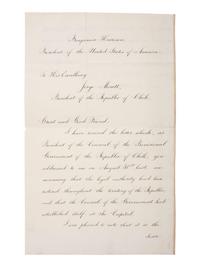 Benjamin Harrison
President of the United States of America.
To His Excellency
Jorge Montt,
President of the Republic of Chile.
Great and Good Friend:
I have received the letter which, as
President of the Council of the Provisional
Government of the Republic of Chile, you
addressed to me on August 31st last,
announcing that the legal authority had been
restored throughout the territory of the Republic
and that the Council of the Government had
established itself at the Capital.
I am pleased to note that it is the